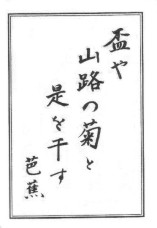 盃や
山路の菊と
是を干す
芭蕉